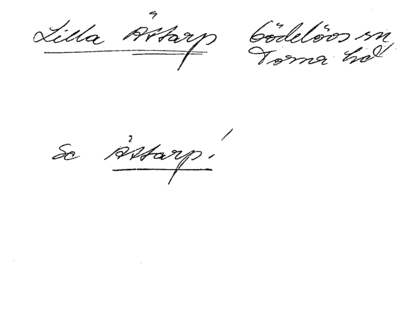 Lilla Åttarp Gödelövs sn
Torna hd
Se Åttarp!